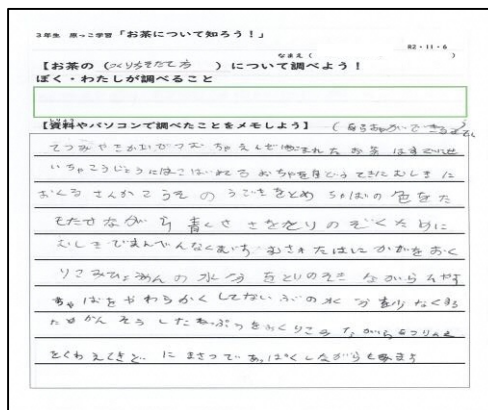 3年生 原っこ学習「お茶について知ろう！」
R2・11・6
なまえ（ ）
【お茶の（つくり方そだて方 ）について調べよう！
ぼく・わたしが調べること
【資料やパソコンで調べたことをメモしよう】（ お茶ができるまで）
てつみやきかいでつむ ちゃえんでつまれたお茶はすぐにせ
いちゃこうじょうにはこばれる おちゃを目どうてきにむしきに
おくる さんかこうその うごきをとめ ちゃばの色をた
もたせながら 青くささをとりのぞくために
むしきでまんべんなくむす むされたはにかぜをおく
りこみひょうめんの水分をとりのぞきながらひやす
ちゃばをやわらかくしてないぶの水分を少なくする
ためかんそうしたねっぷうをおくりこみながら
をくわえ にまさつであっぱくしながらもみます